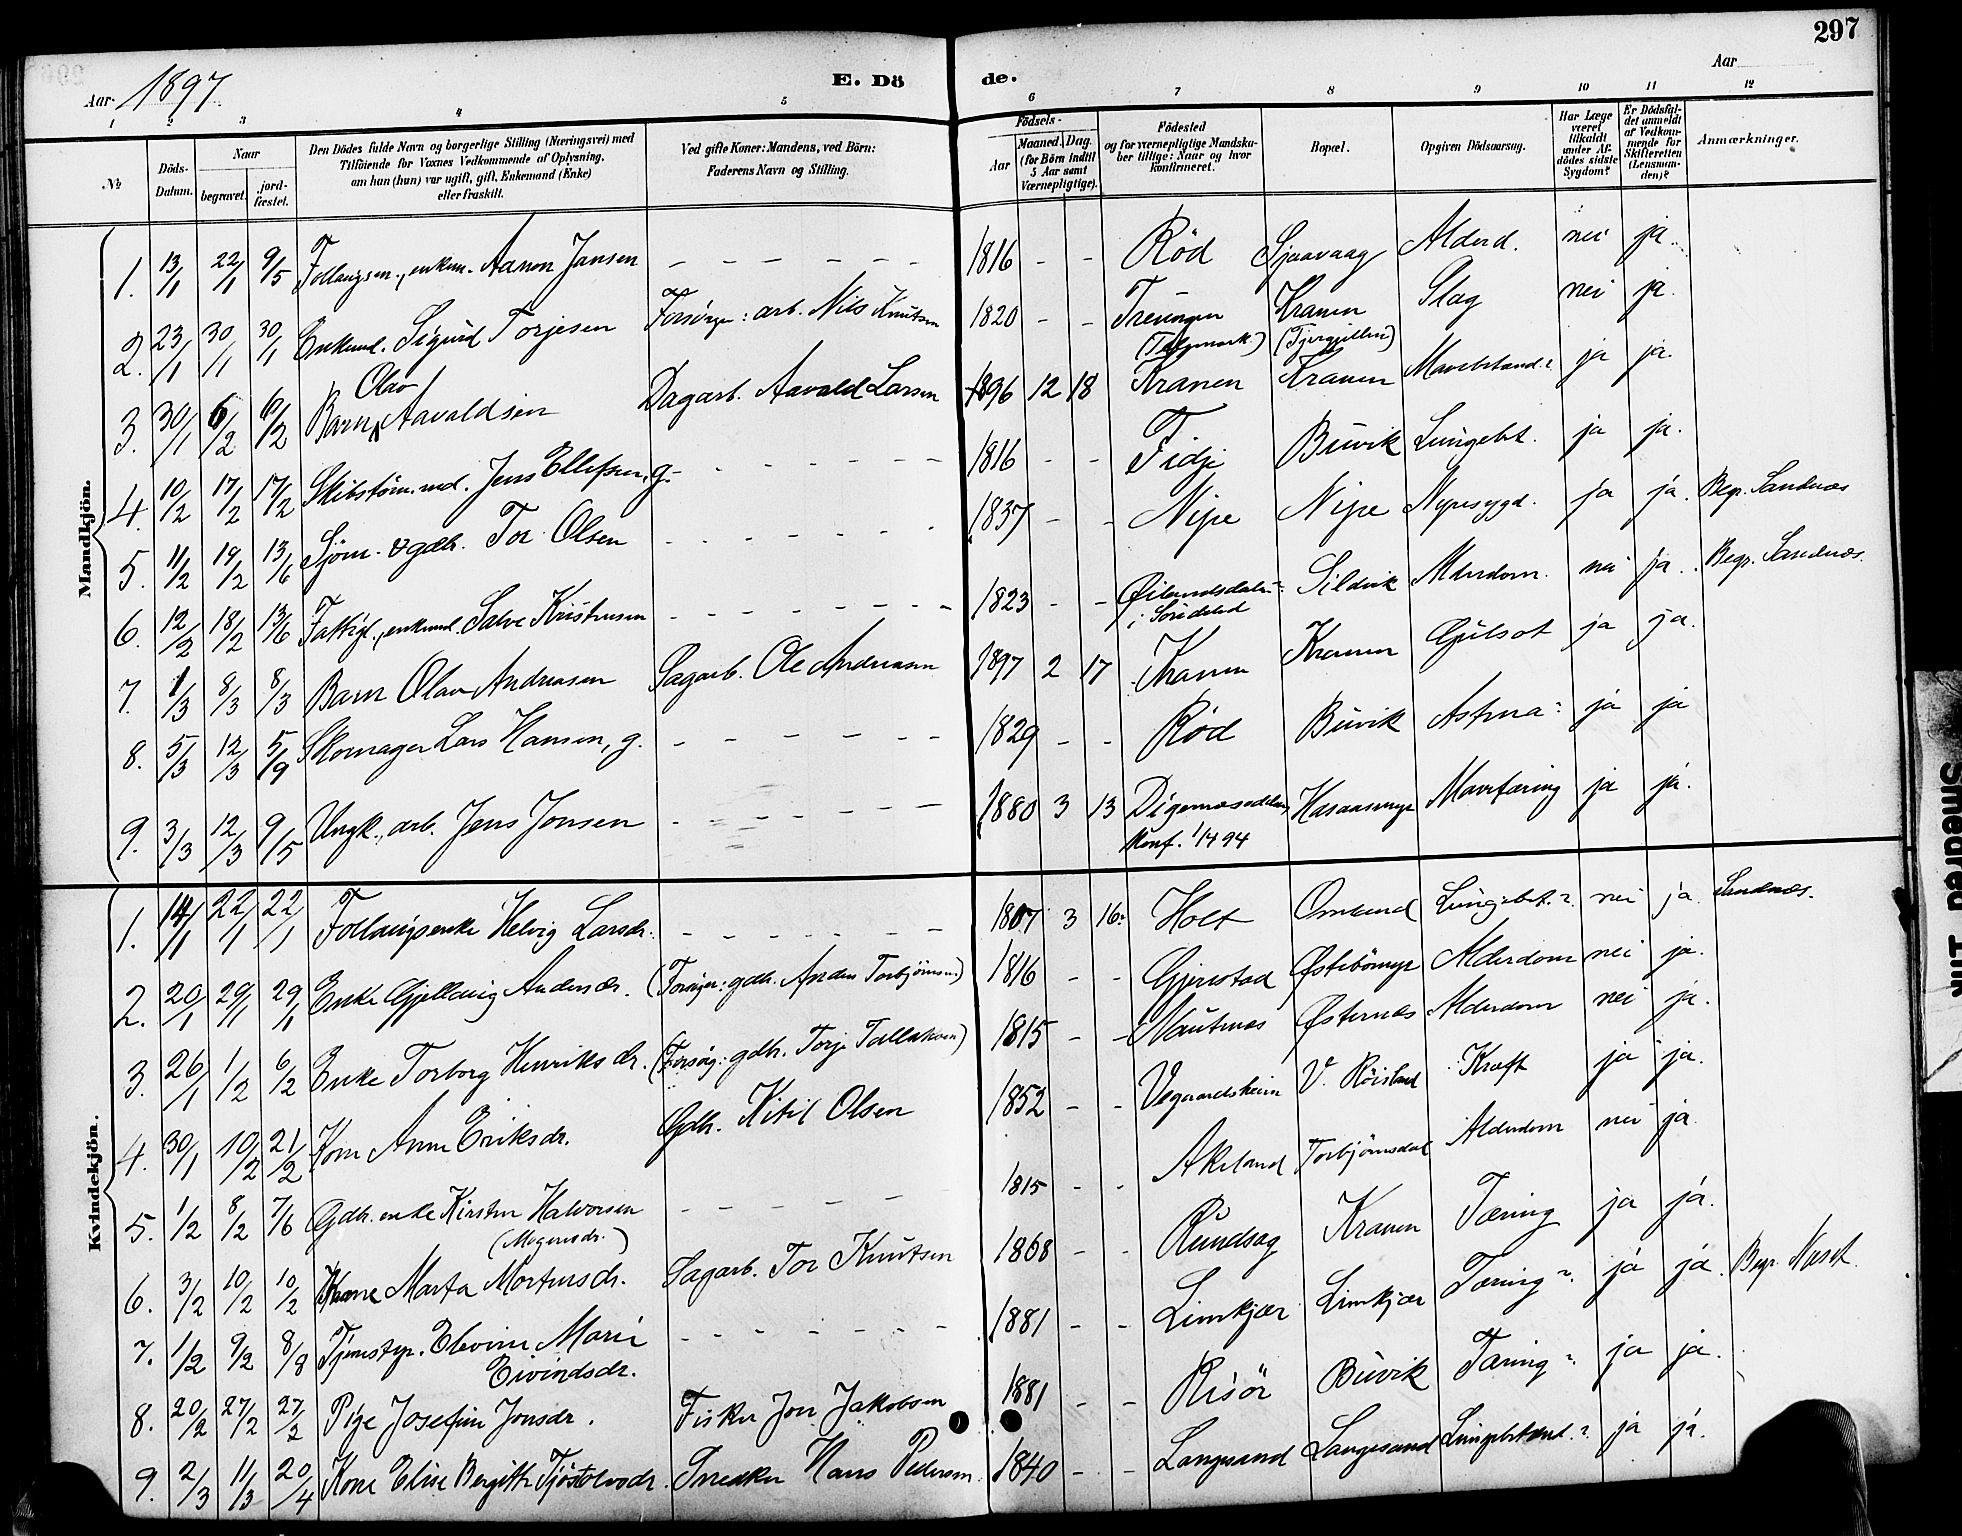 297
Aar 1897
E. Dö de.
Aar
1 2 3 4 5 6 7 8 9 10 11 12
No
Döds-Datum.
Naar begravet. jordfæstet.
Den Dödes fulde Navn og borgerlige Stilling (Næringsvei) med
Tilföiende for Voxnes Vedkommende af Oplysning,
om han (hun) var ugift, gift, Enkemand (Enke)
eller fraskilt.
Ved gifte Koner: Mandens, ved Börn:
Faderens Navn og Stilling.
Födsels-
Aar Maaned. Dag.
(for Börn indtil 5 Aar samt Værnepligtige).
Födested
og for værnepligtige Mandskaber tillige: Naar og hvor konfirmeret.
Bopæl.
Opgiven Dödsaarsag.
Har Læge været tilkaldt under Afdödes sidste Sygdom?
Er Dödsfaldet anmeldt af Vedkommende for Skifteretten (Lensmanden)?
Anmærkninger.
Mandkjön.
1. 13/1 22/1 9/5 Follaugsm., enkem. Aanon Jansen - - - 1816 - - Rød Sjaavaag Alderd. nei ja.
2. 23/1 30/1 30/1 Enkemd. Sigurd Torjesen Forsørger: arb. Nils Knutsen 1820 - - Treungen (Telemark) Kranen Slag nei ja.
3. 30/1 6/2 6/2 Barn Olav Aavaldsen Dagarb. Aavald Larsen 1896 12 18 Kranen Kranen ja ja.
4. 10/2 17/2 17/2 Skibstøm.md. Jens Ellefsen, g. - - - 1816 - - Fidje Buvik Lungebet. ja ja.
5. 11/2 19/2 13/6 Sjøm. & gdb. Tor Olsen - - - 1837 - - Nipe Nipe Nyresygd. ja ja. Begr. Sandnæs
6. 12/2 18/2 13/6 Fattigl., enkemd. Salve Kristensen - - - 1823 - - i Søndeled Sildvik Alderdom. nei ja. Begr. Sandnæs.
7. 1/3 8/3 8/3 Barn Olav Andreasen Sagarb. Ole Andreasen 1897 2 17 Kranen Kranen Gulsot ja ja.
8. 5/3 12/3 5/9 Skomager Lars Hansen, g. - - - 1829 - - Rød Buvik Astma? ja ja
9. 3/3 12/3 9/5 Ungk., arb. Jens Jonsen - - - 1880 3 13 Konf. 94 Mavetæring ja ja.
Kvindekjön.
1. 14/1 22/1 22/1 Follaugsenke Helvig Larsdr. - - - 1807 3 16. Holt Omlund Lungebet.? nei ja. Sandnæs.
2. 20/1 29/1 29/1 Enke Gjellaug Andersdr. (Forsørger: gdb. Anders Torbjørnsen) 1816 - - Gjerestad Østebømyr Alderdom nei ja.
3. 26/1 1/2 6/2 Enke Torborg Henriksdr. (Forsørg: gdb. Torje Tallaksen) 1815 - - Nautnes Østernæs Alderdom nei ja.
4. 30/1 10/2 21/2 Kone Anne Eriksdr. Gdb. Kitil Olsen 1852 - - Vegaardsheien V. Røisland Kræft ja ja.
5. 1/2 8/2 7/6 Gdb. enke Kirsten Halvorsen - - - 1815 - - Akeland Torbjørnsdal Alderdom nei ja.
6. 3/2 10/2 10/2 Kone Marta Mortensdr. Sagarb. Tor Knutsen 1868 - - Rundsag Kranen Tæring ja ja.
7. 1/2 9/2 8/8 Tjenestep. Elevine Marie Eivindsdr. - - - 1881 - - Limkjær Limkjær Tæring? ja ja. Begr. Næset.
8. 20/2 27/2 27/2 Pige Josefine Jonsdr. Fisker Jon Jakobsen 1881 - - Risør Buvik Tæring? ja ja.
9. 2/3 11/3 20/4 Kone Elise Bergitte Tjøstolvsdr. Snedker Hans Pedersen 1840 - - Langsand Langesand Lungebetænd.? ja ja.